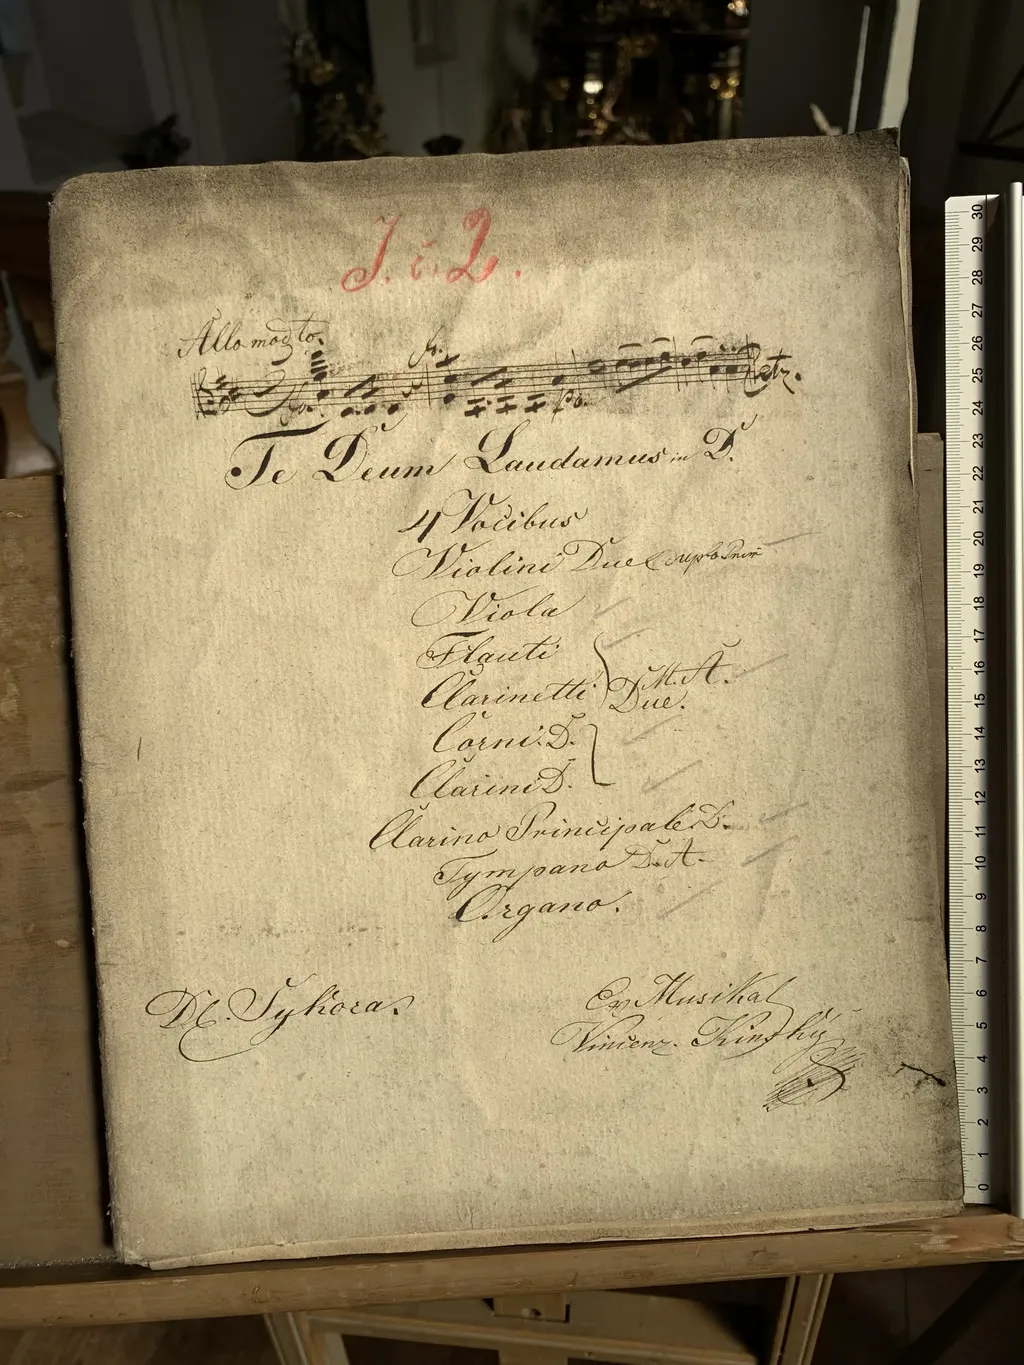 J. č. 2.
Allo modto.
fo. po. etz.
Te Deum Laudamus in D.
4 Vocibus
Violini Due
Viola
Flauti
Clarinetti Due. M. A.
Corni. D.
Clarini D.
Clarino Principale D.
Tympano D. A.
Organo.
Del. Sykora.
Ex Musikal
Vincenz. Kinský
30
29
28
27
26
25
24
23
22
21
20
19
18
17
16
15
14
13
12
11
10
9
8
7
6
5
4
3
2
1
0